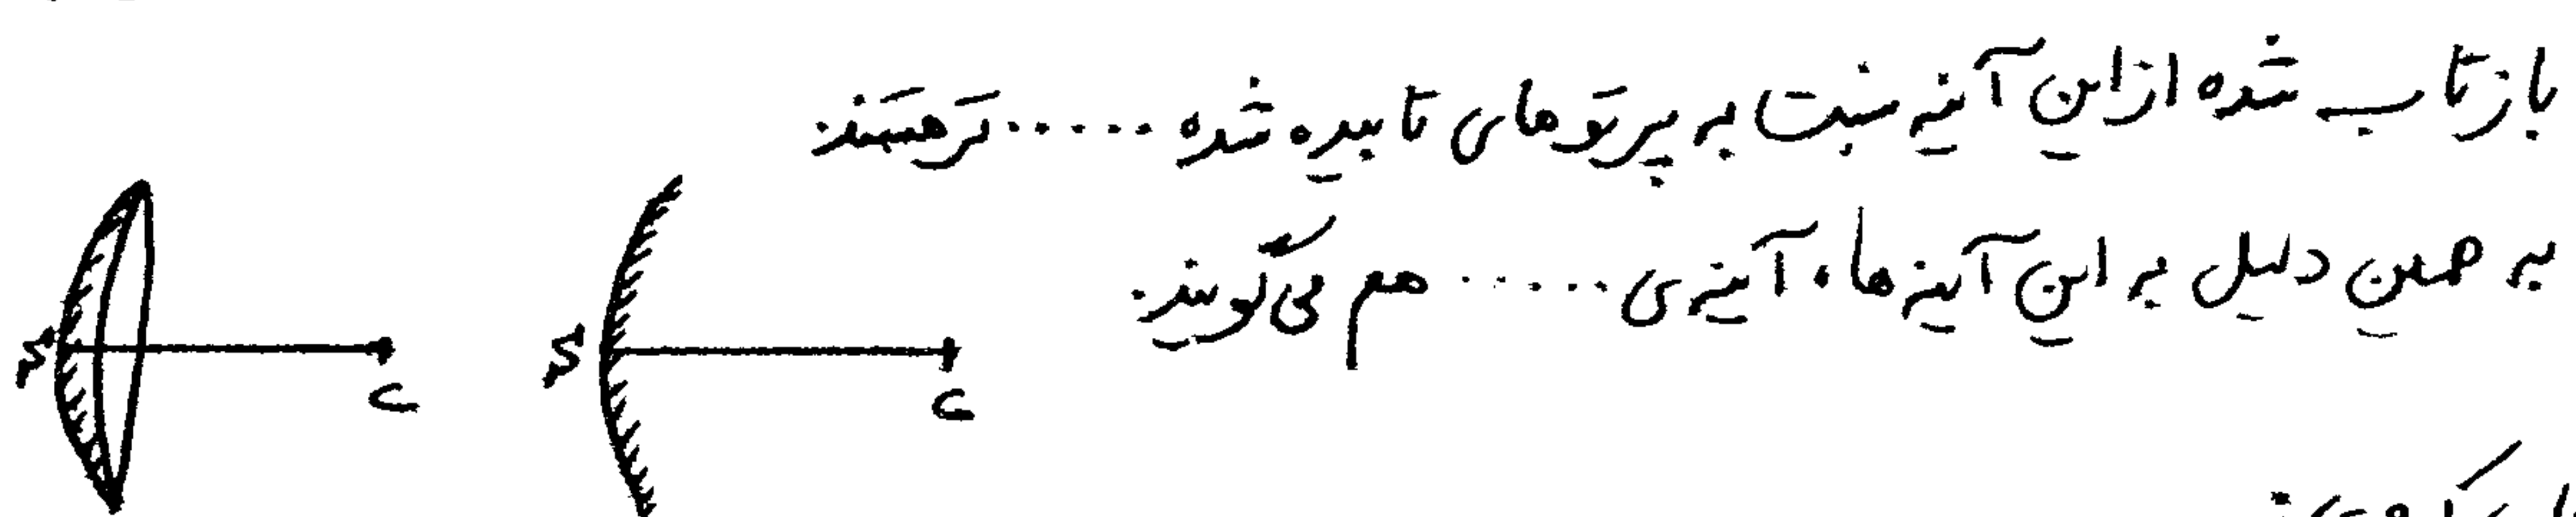 بازتاب شده از این آینه نسبت به پرتوهای تابیده شده ...... تر هستند.
به همین دلیل به این آینه ها، آینه ی ...... هم می گویند.
S C S C